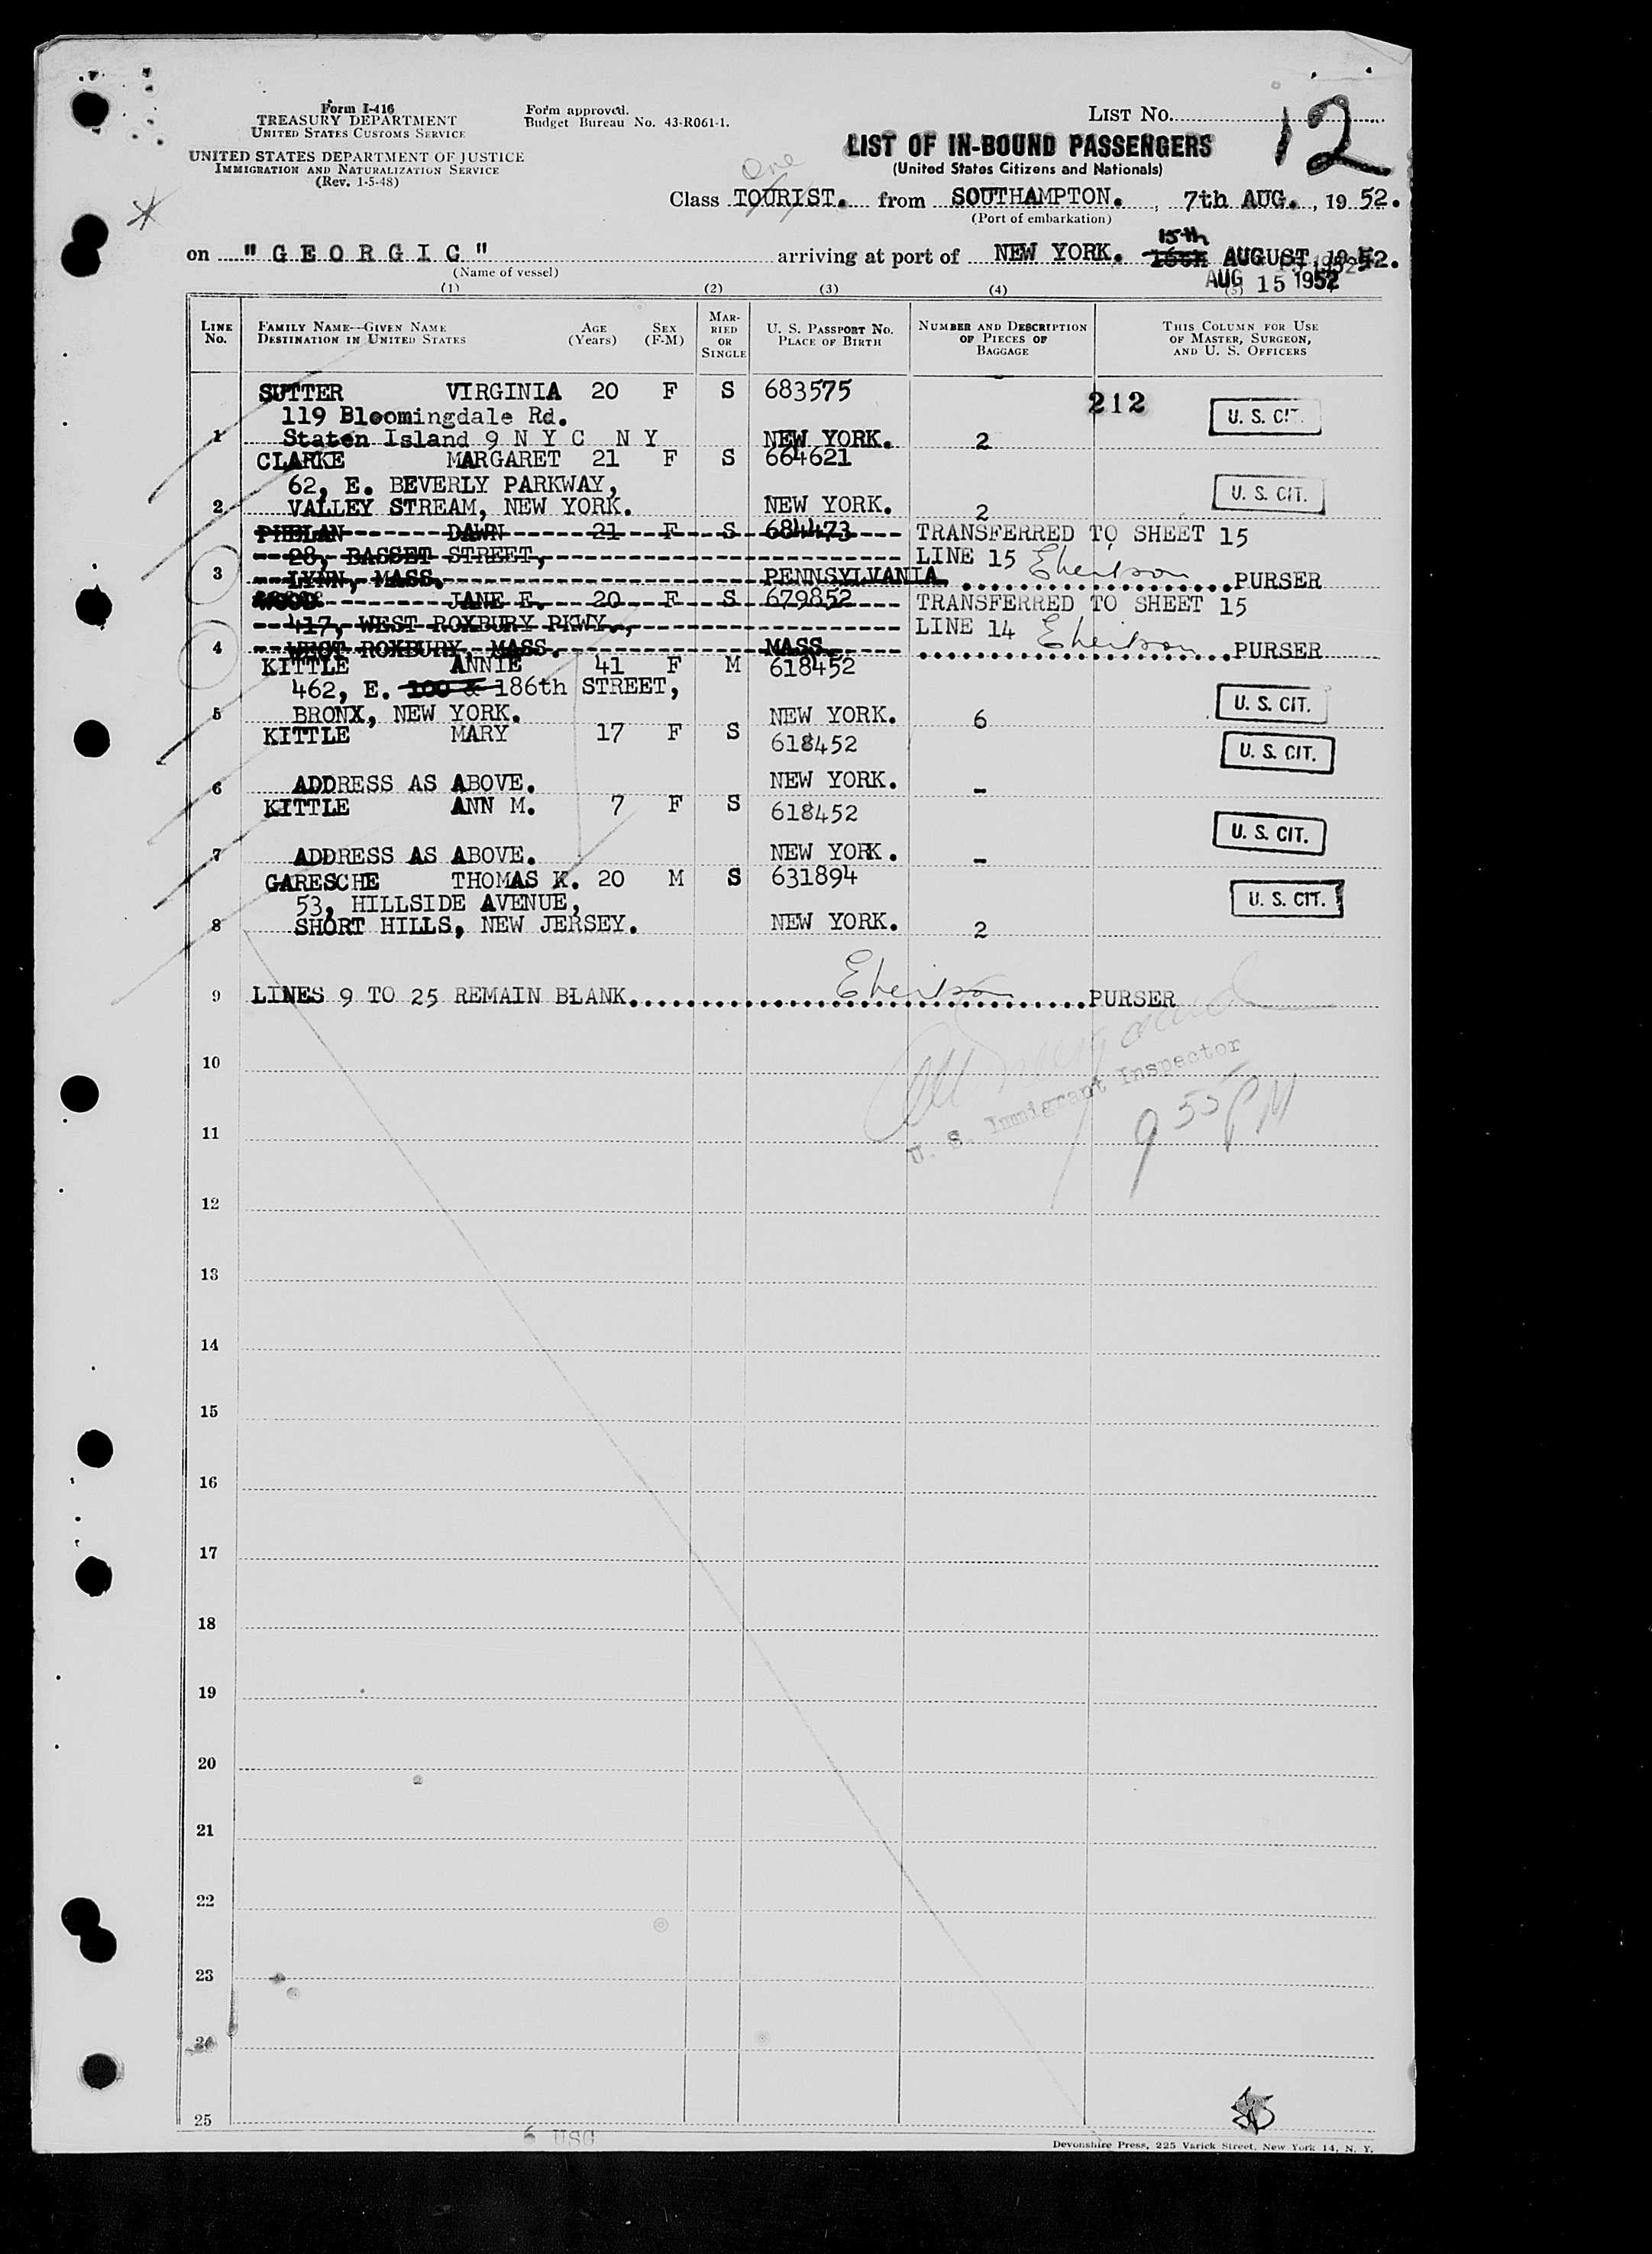 Form I-416
TREASURY DEPARTMENT
UNITED STATES CUSTOMS SERVICE
UNITED STATES DEPARTMENT OF JUSTICE
IMMIGRATION AND NATURALIZATION SERVICE
(Rev. 1-5-48)
Form approved.
Budget Bureau No. 43-R061-1.
LIST NO. 12
LIST OF IN-BOUND PASSENGERS
(United States Citizens and Nationals)
One
Class TOURIST. from SOUTHAMPTON. , 7th AUG. , 19 52.
(Port of embarkation)
15th
on "GEORGIC" arriving at port of NEW YORK. 16th AUGUST 1952.
(Name of vessel)
AUG 15 1952
(1) (2) (3) (4) (5)
LINE No. FAMILY NAME—GIVEN NAME DESTINATION IN UNITED STATES AGE (Years) SEX (F-M) MARRIED OR SINGLE U. S. PASSPORT No. PLACE OF BIRTH NUMBER AND DESCRIPTION OF PIECES OF BAGGAGE THIS COLUMN FOR USE OF MASTER, SURGEON, AND U. S. OFFICERS
SUTTER VIRGINIA 20 F S 683575 212
119 Bloomingdale Rd. U. S. CIT.
1 Staten Island 9 N Y C N Y NEW YORK. 2
CLARKE MARGARET 21 F S 664621
62, E. BEVERLY PARKWAY, U. S. CIT.
2 VALLEY STREAM, NEW YORK. NEW YORK. 2
PHELAN DAWN 21 F S 684473 TRANSFERRED TO SHEET 15
28, BASSET STREET, LINE 15
3 LYNN, MASS. PENNSYLVANIA PURSER
WOOD JANE E. 20 F S 679852 TRANSFERRED TO SHEET 15
417, WEST ROXBURY PKWY., LINE 14
4 WEST ROXBURY, MASS. MASS. PURSER
KITTLE ANNIE 41 F M 618452
462, E. 100 & 186th STREET, U. S. CIT.
5 BRONX, NEW YORK. NEW YORK. 6
KITTLE MARY 17 F S 618452 U. S. CIT.
6 ADDRESS AS ABOVE. NEW YORK. -
KITTLE ANN M. 7 F S 618452
U. S. CIT.
7 ADDRESS AS ABOVE. NEW YORK. -
GARESCHE THOMAS K. 20 M S 631894
53, HILLSIDE AVENUE, U. S. CIT.
8 SHORT HILLS, NEW JERSEY. NEW YORK. 2
9 LINES 9 TO 25 REMAIN BLANK. PURSER
10
U. S. Immigrant Inspector
9 55 PM
11
12
13
14
15
16
17
18
19
20
21
22
23
24
25
6 USC
Devonshire Press, 225 Varick Street, New York 14, N. Y.